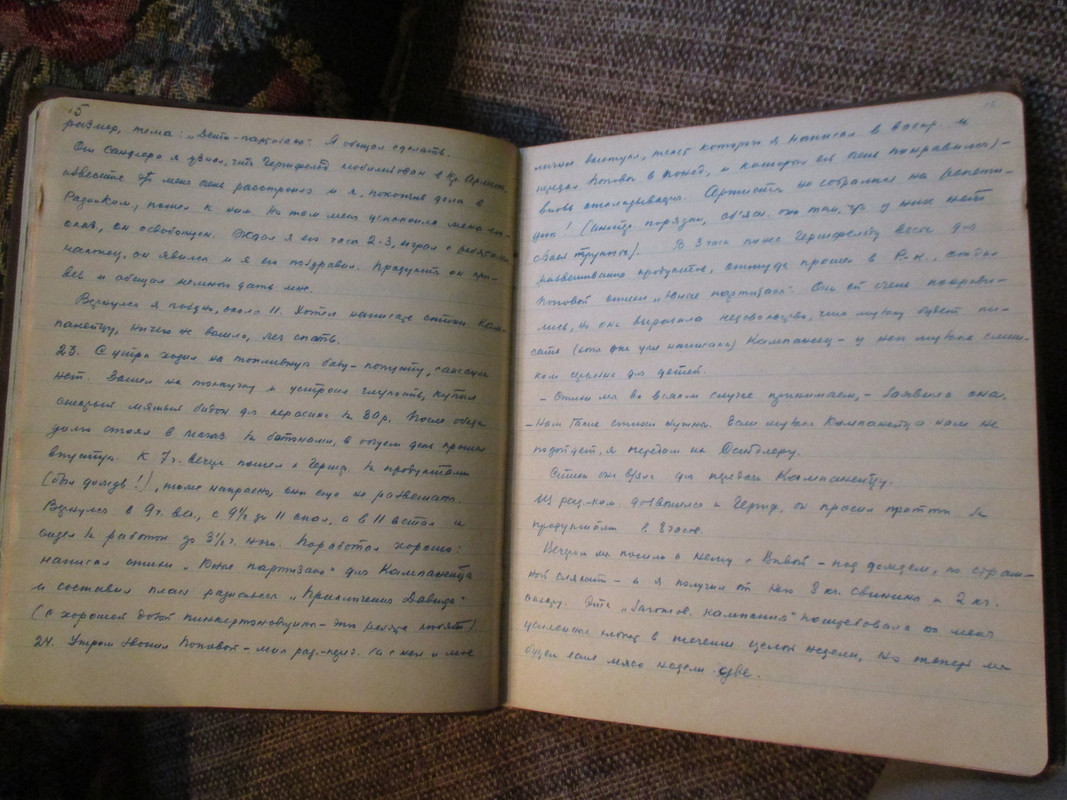 15
размер, тема: „Дети-партизаны". Я обещал сделать.
От Сандлера я узнал, что Гершфельд мобилизован в Кр. Армию.
известие меня очень расстроило и я, покончив дела в
Радиоком, пошел к ним. На том меня успокоила мама
он освобожден. Ждал я его часа 2-3, играл с
наконец, он явился и я его поздравил. Продукты он при-
вез и обещал мне дать мне.
Вернулся я поздно, около 11. Хотел написать стихи Ком-
панейцу, ничего не вышло, лег спать.
23. С утра ходил на топливную базу - попусту, саксаула
нет. Зашел на толкучку и устроил глупость, купил
мятый бидон для керосина за 80 р. После обеда
долго стоял в магаз. за батонами, в общем день прошел
впустую. К 7 ч. вечера пошел к Гершф. за продуктами
(был дождь!), тоже напрасно, они еще не развешаны.
Вернулся в 9 ч. с 9½ до 11 спал, а в 11 встал и
сидел за работой до 3½ ч. ночи. Поработал хорошо:
написал стихи „Юные партизаны" для Компанейца
и составил план радиопьесы „Приключения Давида"
(с хорошей дозой пинкертоновщины - это ребята любят)
24. Утром звонил Поповой - мол рад.-пер. и мое
личное выступл., текст которого я написал в воскр. и
передал Поповой в понед., и которое ей очень понравилось) -
вновь откладывается. Артисты не собрались на репети-
цию! (Анекд. порядки, об'ясн. это тем, что у них нет
своей труппы). В 3 часа понес Гершфельду весы для
развешивания продуктов, оттуда прошел в Р-к., отдал
Поповой стихи „Юные партизаны". Они ей очень понрави-
лись, но она выразила недовольство, что музыку будет пи-
сать (или уже написал) Компанеец - у него музыка слиш-
ком сложна для детей.
- Стихи мы во всяком случае принимаем, - заявила она.
- Нам такие стихи нужны. Если музыка Компанейца нам не
подойдет, я передам их Сандлеру.
Стихи она взяла для передачи Компанейцу.
Из рад.-ком. дозвонился к Гершф., он просил притти за
продуктами в 8 часов.
Вечером мы пошли к нему с Вивой - под дождем, по страш-
ной слякоти - и я получил от него 8 кг. свинины и 2 кг.
Эта кампания потребовала от меня
усиленных хлопот в течение целой недели, но теперь мы
будем есть мясо недели две.